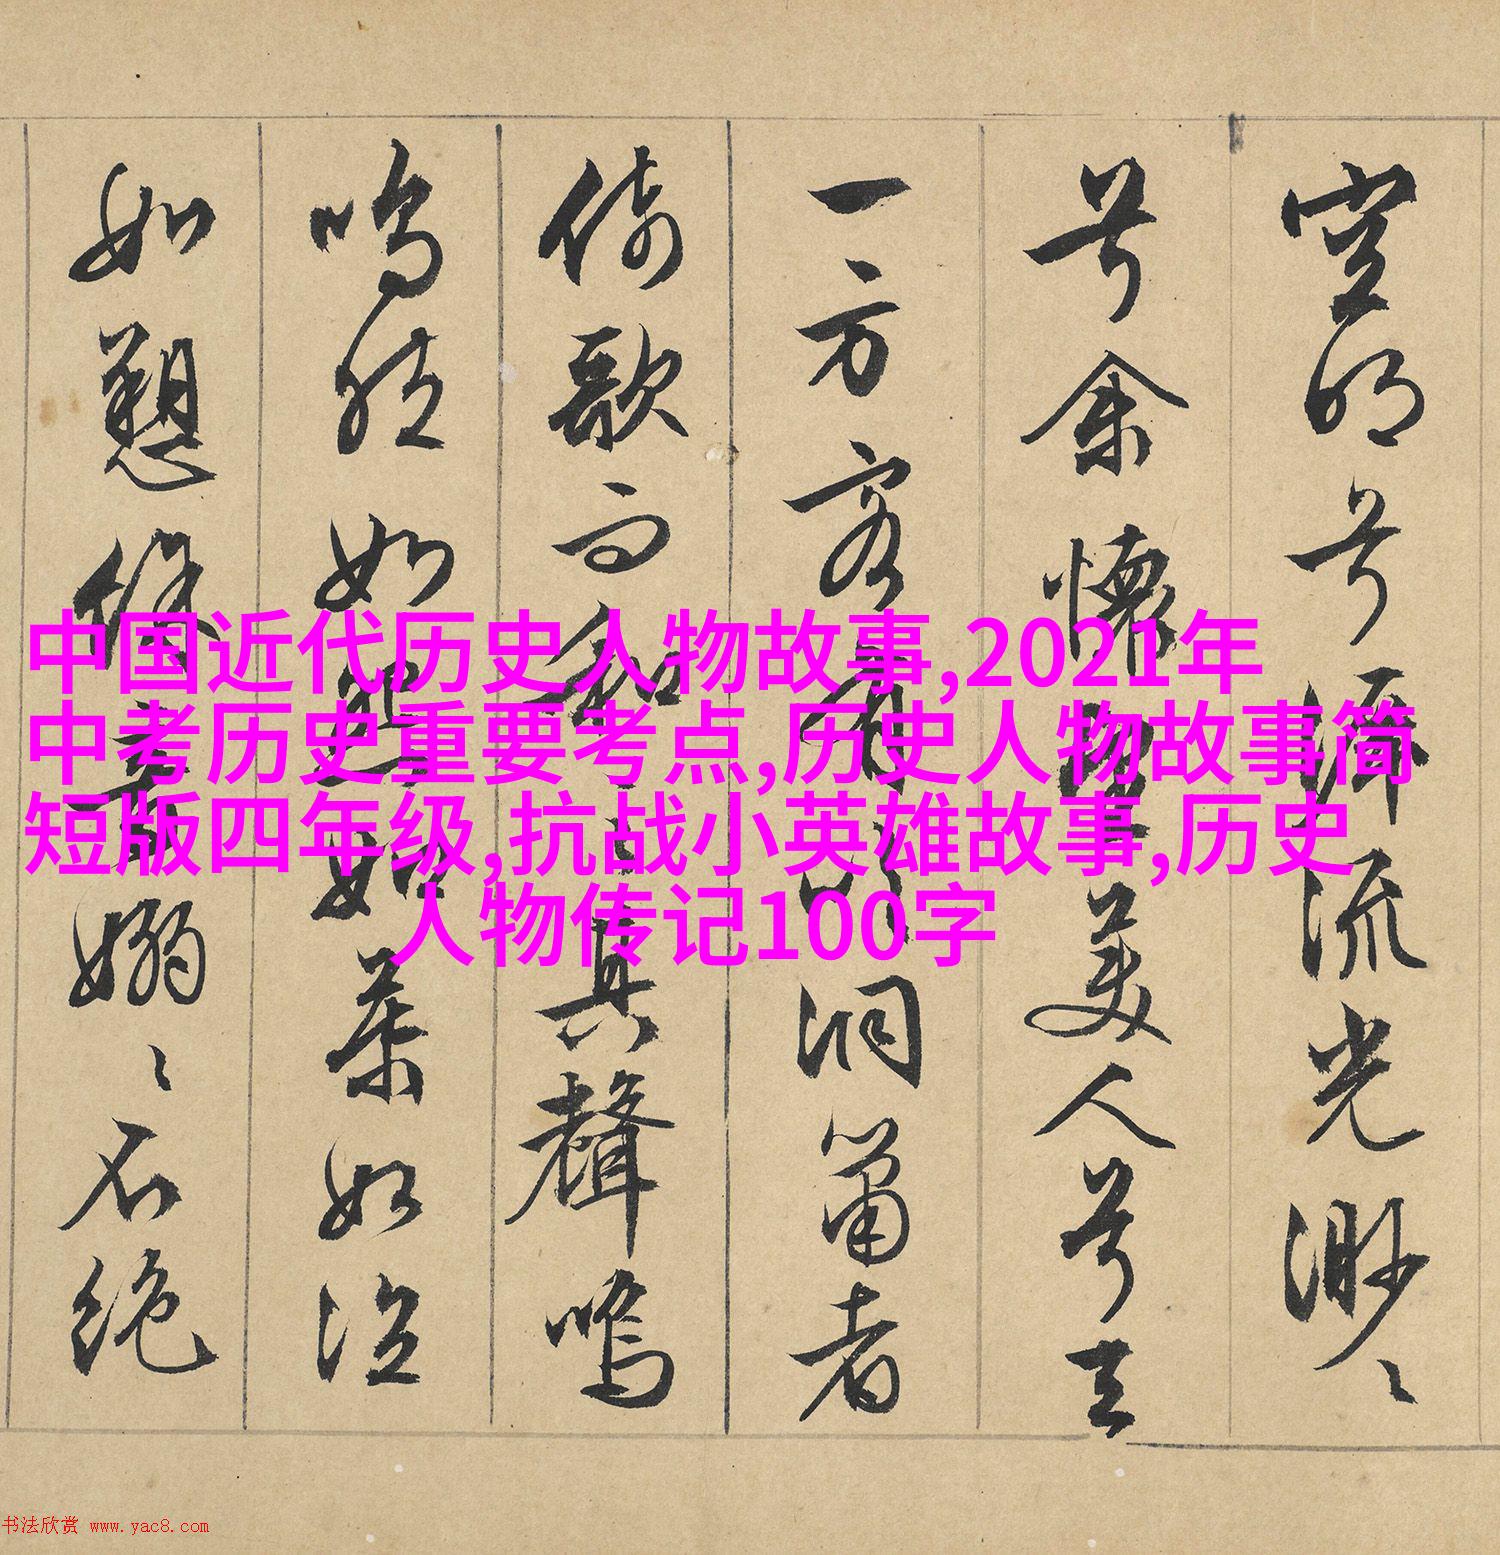 空明兮泝流光渺〻
兮余懷望美人兮天
一方客有吹洞簫者
倚歌而和之其聲嗚
嗚然如怨如慕如泣
如愬餘音嫋〻不絕
中国近代历史人物故事,2021年
中考历史重要考点,历史人物故事简
短版四年级,抗战小英雄故事,历史
人物传记100字
书法欣赏 www.yac8.com